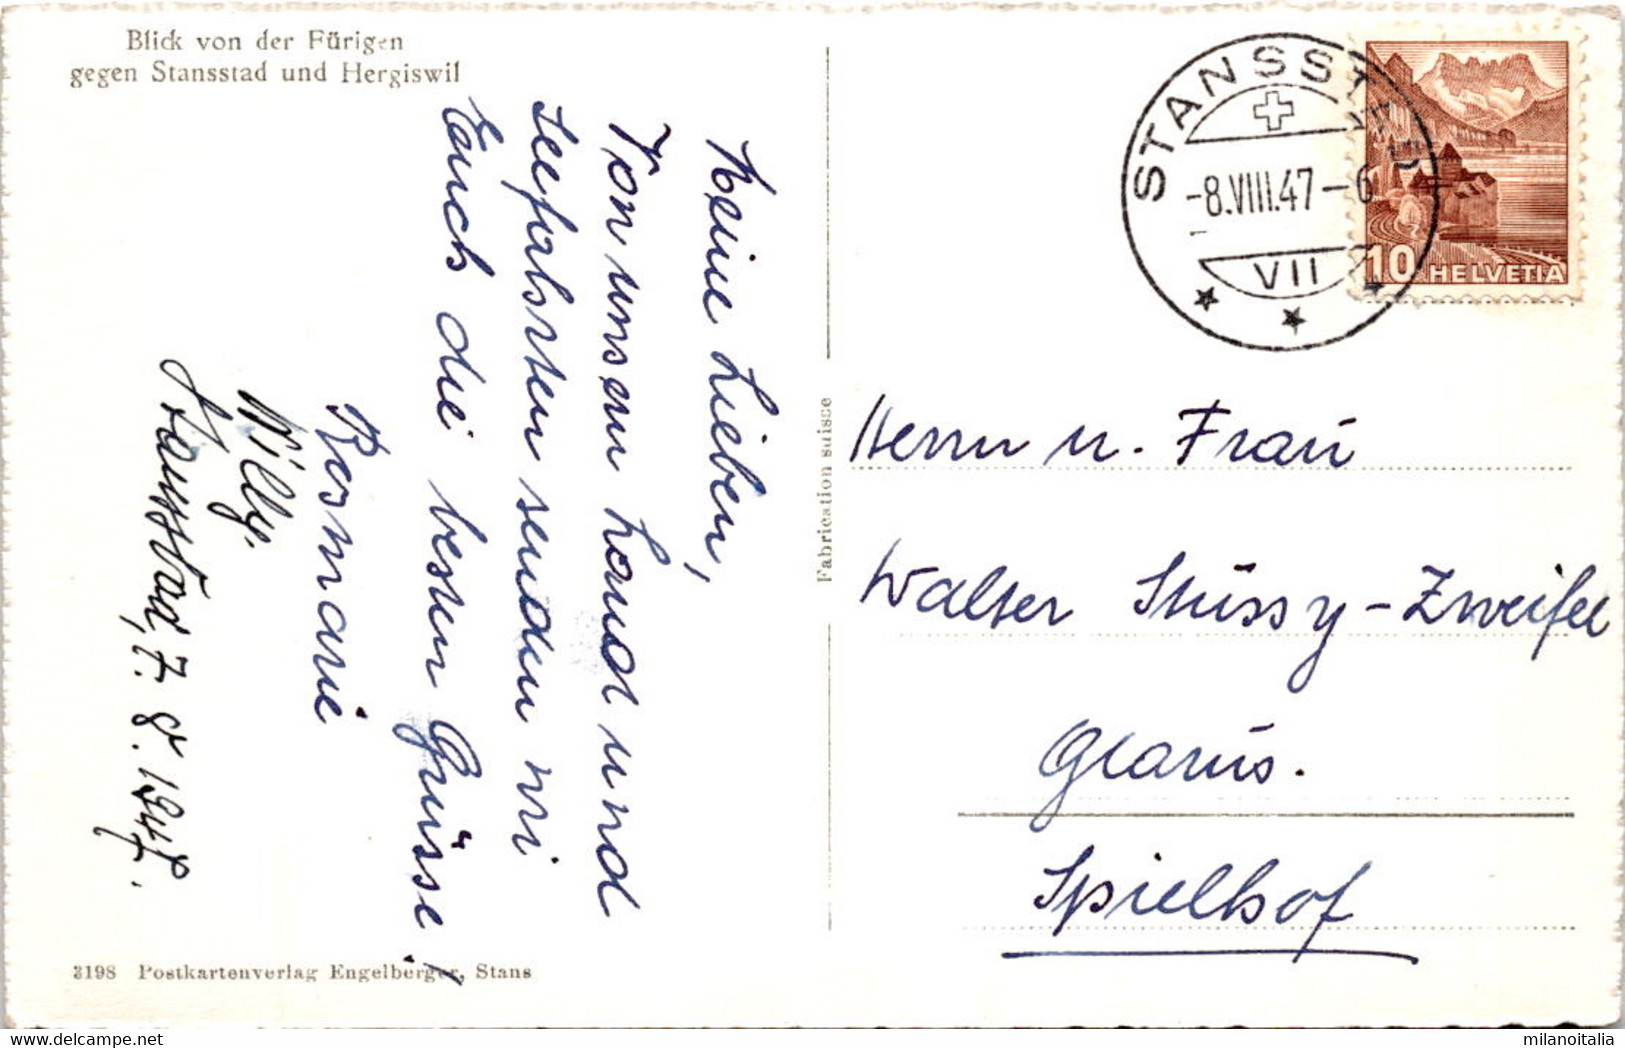 Blick von der Fürigen
gegen Stansstad und Hergiswil
Meine Lieben,
Von unsern Land und
Seefahrten senden wir
Euch die besten Grüsse!
Rosmarie
Willy.
Stansstad, 7. 8. 1947.
3198 Postkartenverlag Engelberger, Stans
Fabrication suisse
STANSSTAD
-8.VIII.47-6
VII
10 HELVETIA
Herrn u. Frau
Walter Stüssy-Zweifel
Glarus.
Spielhof
delcampe.net
milanoitalia